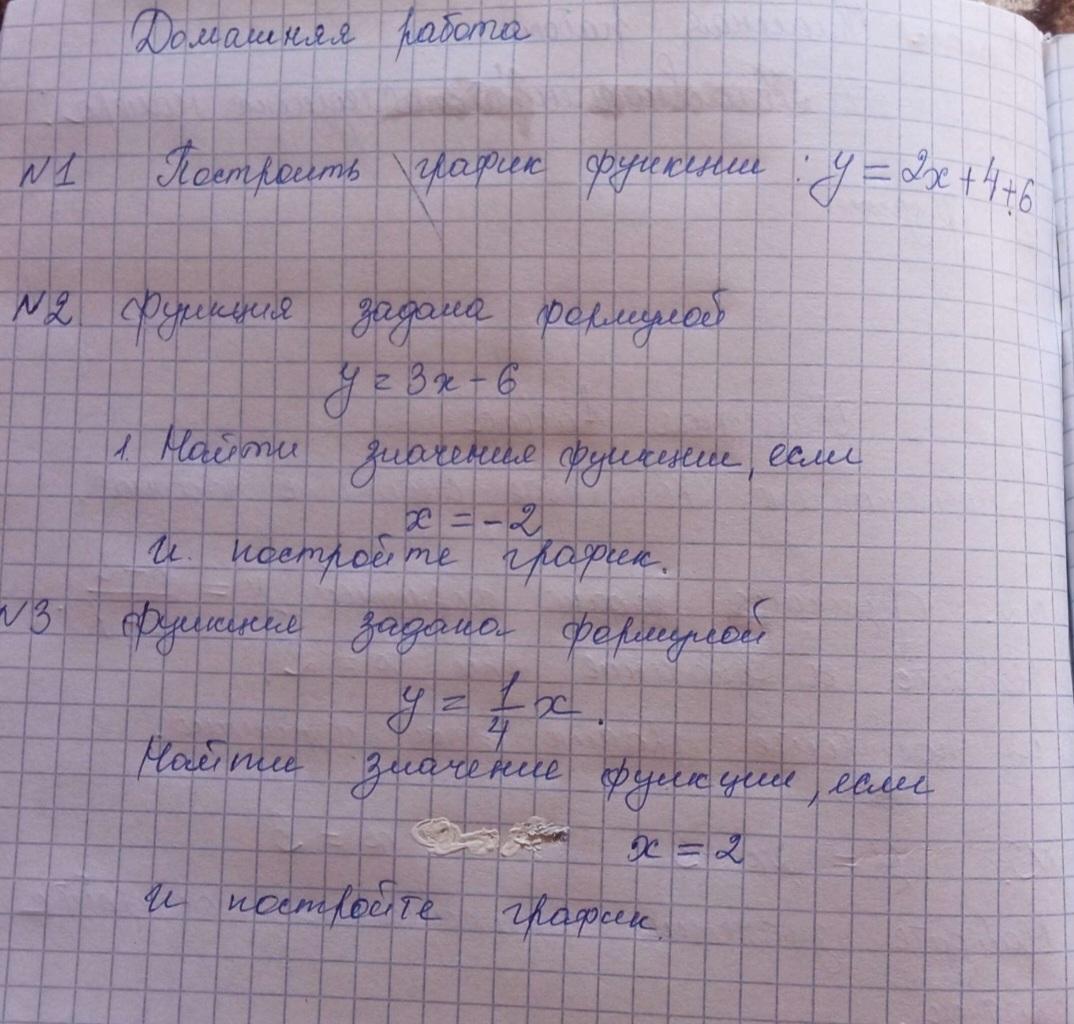 Домашняя работа
N1 Построить график функции : y = 2x + 4 + 6
N2 Функция задана формулой
y = 3x - 6
1. Найти значения функции, если
x = -2
и постройте график.
N3 Функция задана формулой
y = 1/4 x.
Найти значение функции, если
x = 2
и постройте график.